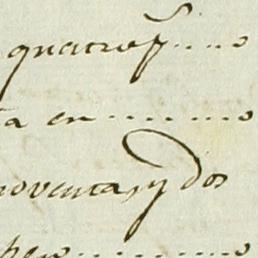 quatrop.......
a en..........
noventa, y dos